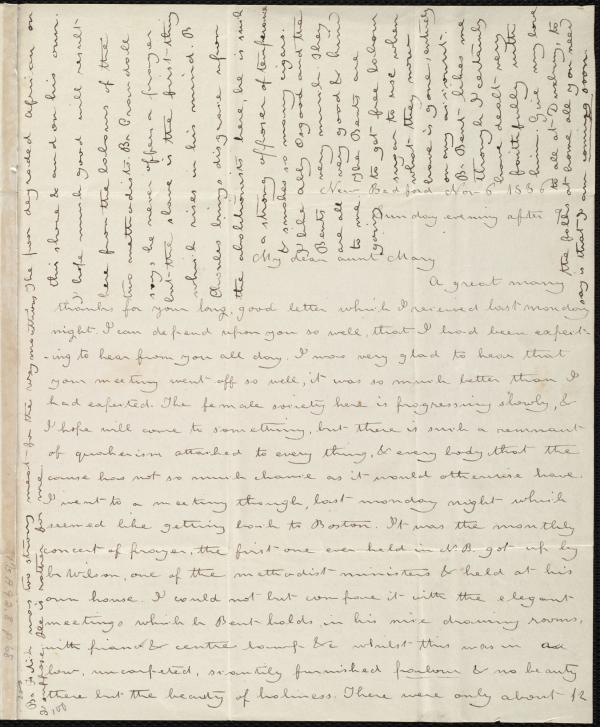 New Bedford Nov 6 1836
Sunday evening after 7
My dear aunt Mary
A great many
thanks for your long, good letter which I received last monday
night. I can depend upon you so well, that I had been expect-
-ing to hear from you all day. I was very glad to hear that
your meeting went off so well, it was so much better than I
had expected. The female society here is progressing slowly, &
I hope will come to something, but there is such a remnant
of quakerism attached to every thing, & every body, that the
cause has not so much chance as it would otherwise have.
I went to a meeting though, last monday night which
seemed like getting back to Boston. It was the monthly
concert of prayer, the first one ever held in N B. got up by
br Wilson, one of the methodist ministers & held at his
own house. I could not but compare it with the elegant
meetings which br Bent holds, in his nice drawing rooms,
with piano & centre lamp &c whilst this was in a
low, uncarpeted, scantily furnished parlour & no beauty
there but the beauty of holiness. There were only about 12
the poor degraded African on
this shore & and on his own.
I hope much good will result
here from the labours of the
two methodists. Br Crandall
says he never offers a prayer
but the slave is the first thing
which rises in his mind. B
Charles brings disgrace upon
the abolitionists here, he is such
a strong opposer of temperance
& smokes so many cigars.
I like Ally Osgood and the
Bents very much. They
are all very good & kind
to me. The Bents are
going to get free labour
sugar to use when
what they now
have is gone, entirely
on my account.
Br Bent likes me
though I certainly
have dealt very
faithfully with
him. Give my love
to all at Dr Walney, to
the folks at home all you need
say is that I am coming soon.
for me